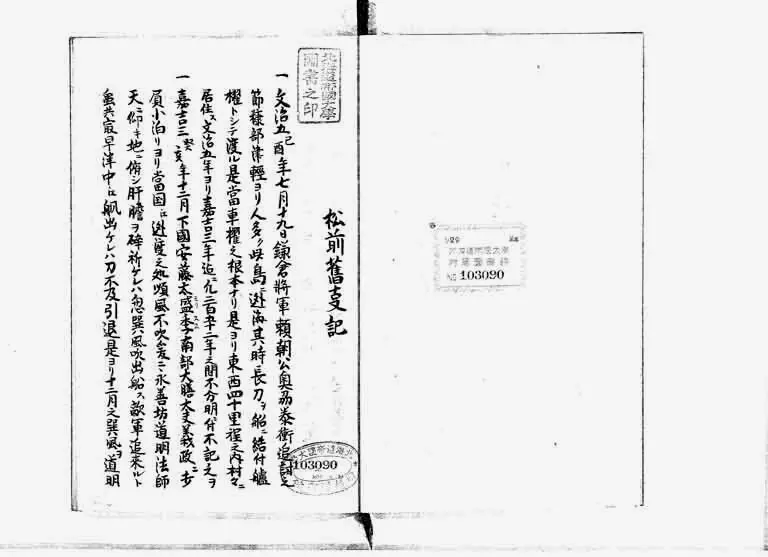 松前舊支記
一 文治五己酉年七月十九日鎌倉將軍賴朝公奥刕泰衡追討之
節糠部津輕ヨリ人多ク此島ニ逃海其時長刀ヲ船ニ結付艫
櫂トシテ渡ル是當車櫂之根本ナリ是ヨリ東西四十里程之内村々ニ
居住ス文治五年ヨリ嘉吉三年迄凡二百五十二年之間不分明付不記之
一 嘉吉三癸亥年十二月下國安藤太盛季南部大膳大夫義政ニ
小泊リヨリ當国江逃渡之処順風不吹
永善坊道明法師
天ニ仰キ地ニ俯シ肝膽ヲ碎祈ケレハ忽巽風吹出船ス敵軍追来ルト
虽共寂早洋中江帆出ケレハ力不及引退是ヨリ十二月之巽風ヲ道明
北海道帝國大學
圖書之印
103090
北海道帝國大學
NO 103090